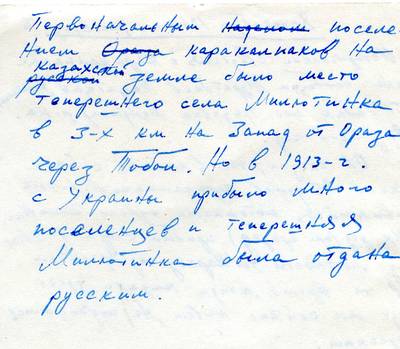 Первоначальным поселе-
нием каракалпаков на
казахской земле было место
теперешнего села Милютинка
в 3-х км на Запад от Ораза
через Тобол. Но в 1913-г.
с Украины прибыло много
поселенцев и теперешняя
Милютинка была отдана
русским.